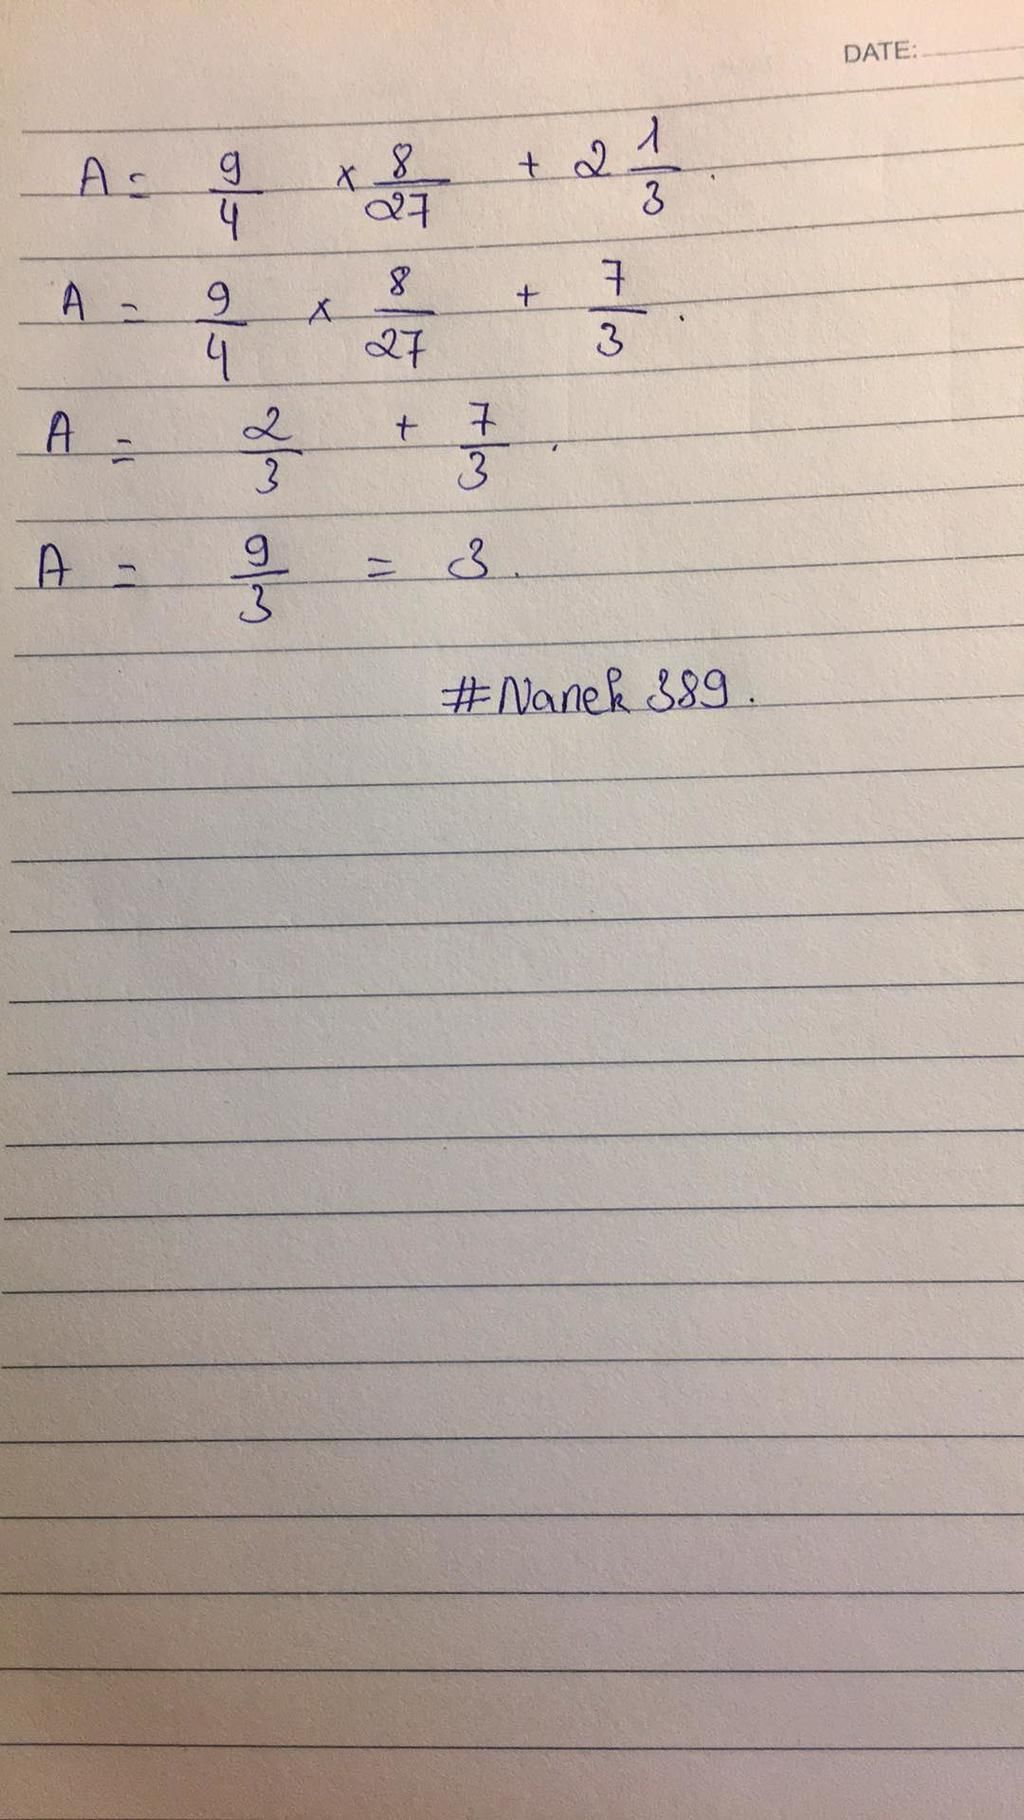 DATE:
A = 9/4 × 8/27 + 2 1/3 .
A = 9/4 × 8/27 + 7/3 .
A = 2/3 + 7/3 .
A = 9/3 = 3 .
#Nanek 389 .